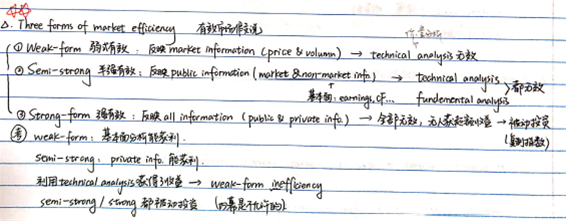 △. Three forms of market efficiency 有效市场假说
① Weak-form 弱式有效: 反映 market information (price & volumn) → technical analysis 无效
② Semi-strong 半强有效: 反映 public information (market & non-market info.) → technical analysis
基本面: earnings, CF... fundemental analysis 都无效
③ Strong-form 强有效: 反映 all information (public & private info.) → 全部无效, 无人获超额收益 → 被动投资
(复制指数)
weak-form: 基本面分析能获利
semi-strong: private info. 能获利.
利用 technical analysis 获得收益 → weak-form inefficiency
semi-strong / strong 都被动投资 (内幕是不允许的)